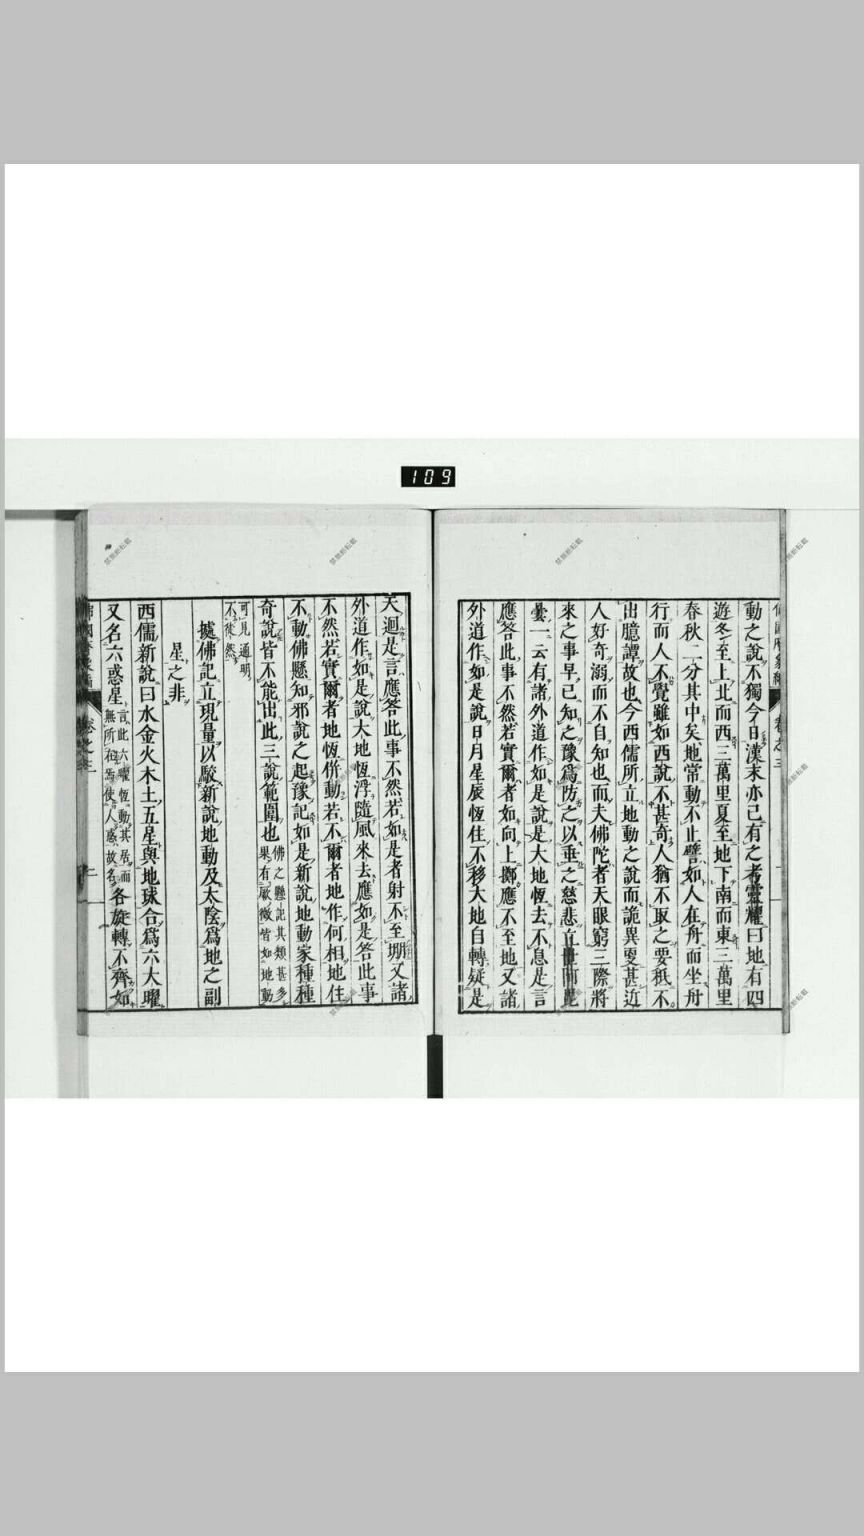 109
動之說不獨今日漢末亦已有之考靈耀曰地有四
遊冬至上北而西三萬里夏至地下南而東三萬里
春秋二分其中矣地常動不止譬如人在舟而坐舟
行而人不覺雖如西說不甚奇人猶不取之要秖不
出臆譚故也今西儒所立地動之說而詭異更甚近
人好奇溺而不自知也而夫佛陀者天眼窮三際將
來之事早已知之豫爲防之以垂之慈悲
曇一云有諸外道作如是說是大地恆去不息是言
應答此事不然若實爾者如向上擲應不至地又諸
外道作如是說日月星辰恆住不移大地自轉疑是
卷之三
天迴是言應答此事不然若如是者射不至堋又諸
外道作如是說大地恆浮隨風來去應如是答此事
不然若實爾者地恆併動若不爾者地作何相地住
不動佛懸知邪說之起豫記如是新說地動家種種
奇說皆不能出此三說範圍也佛之懸記其類甚多
果有厥徵皆如地動
可見通明
不徒然
據佛記立現量以駁新說地動及太陰爲地之副
星之非
西儒新說曰水金火木土五星與地球合爲六大曜
又名六惑星言此六曜恆動其居而
無所在焉使人惑故名各旋轉不齊如
卷之三
禁無断転載
禁無断転載
禁無断転載
禁無断転載
禁無断転載
禁無断転載
禁無断転載
禁無断転載
禁無断転載